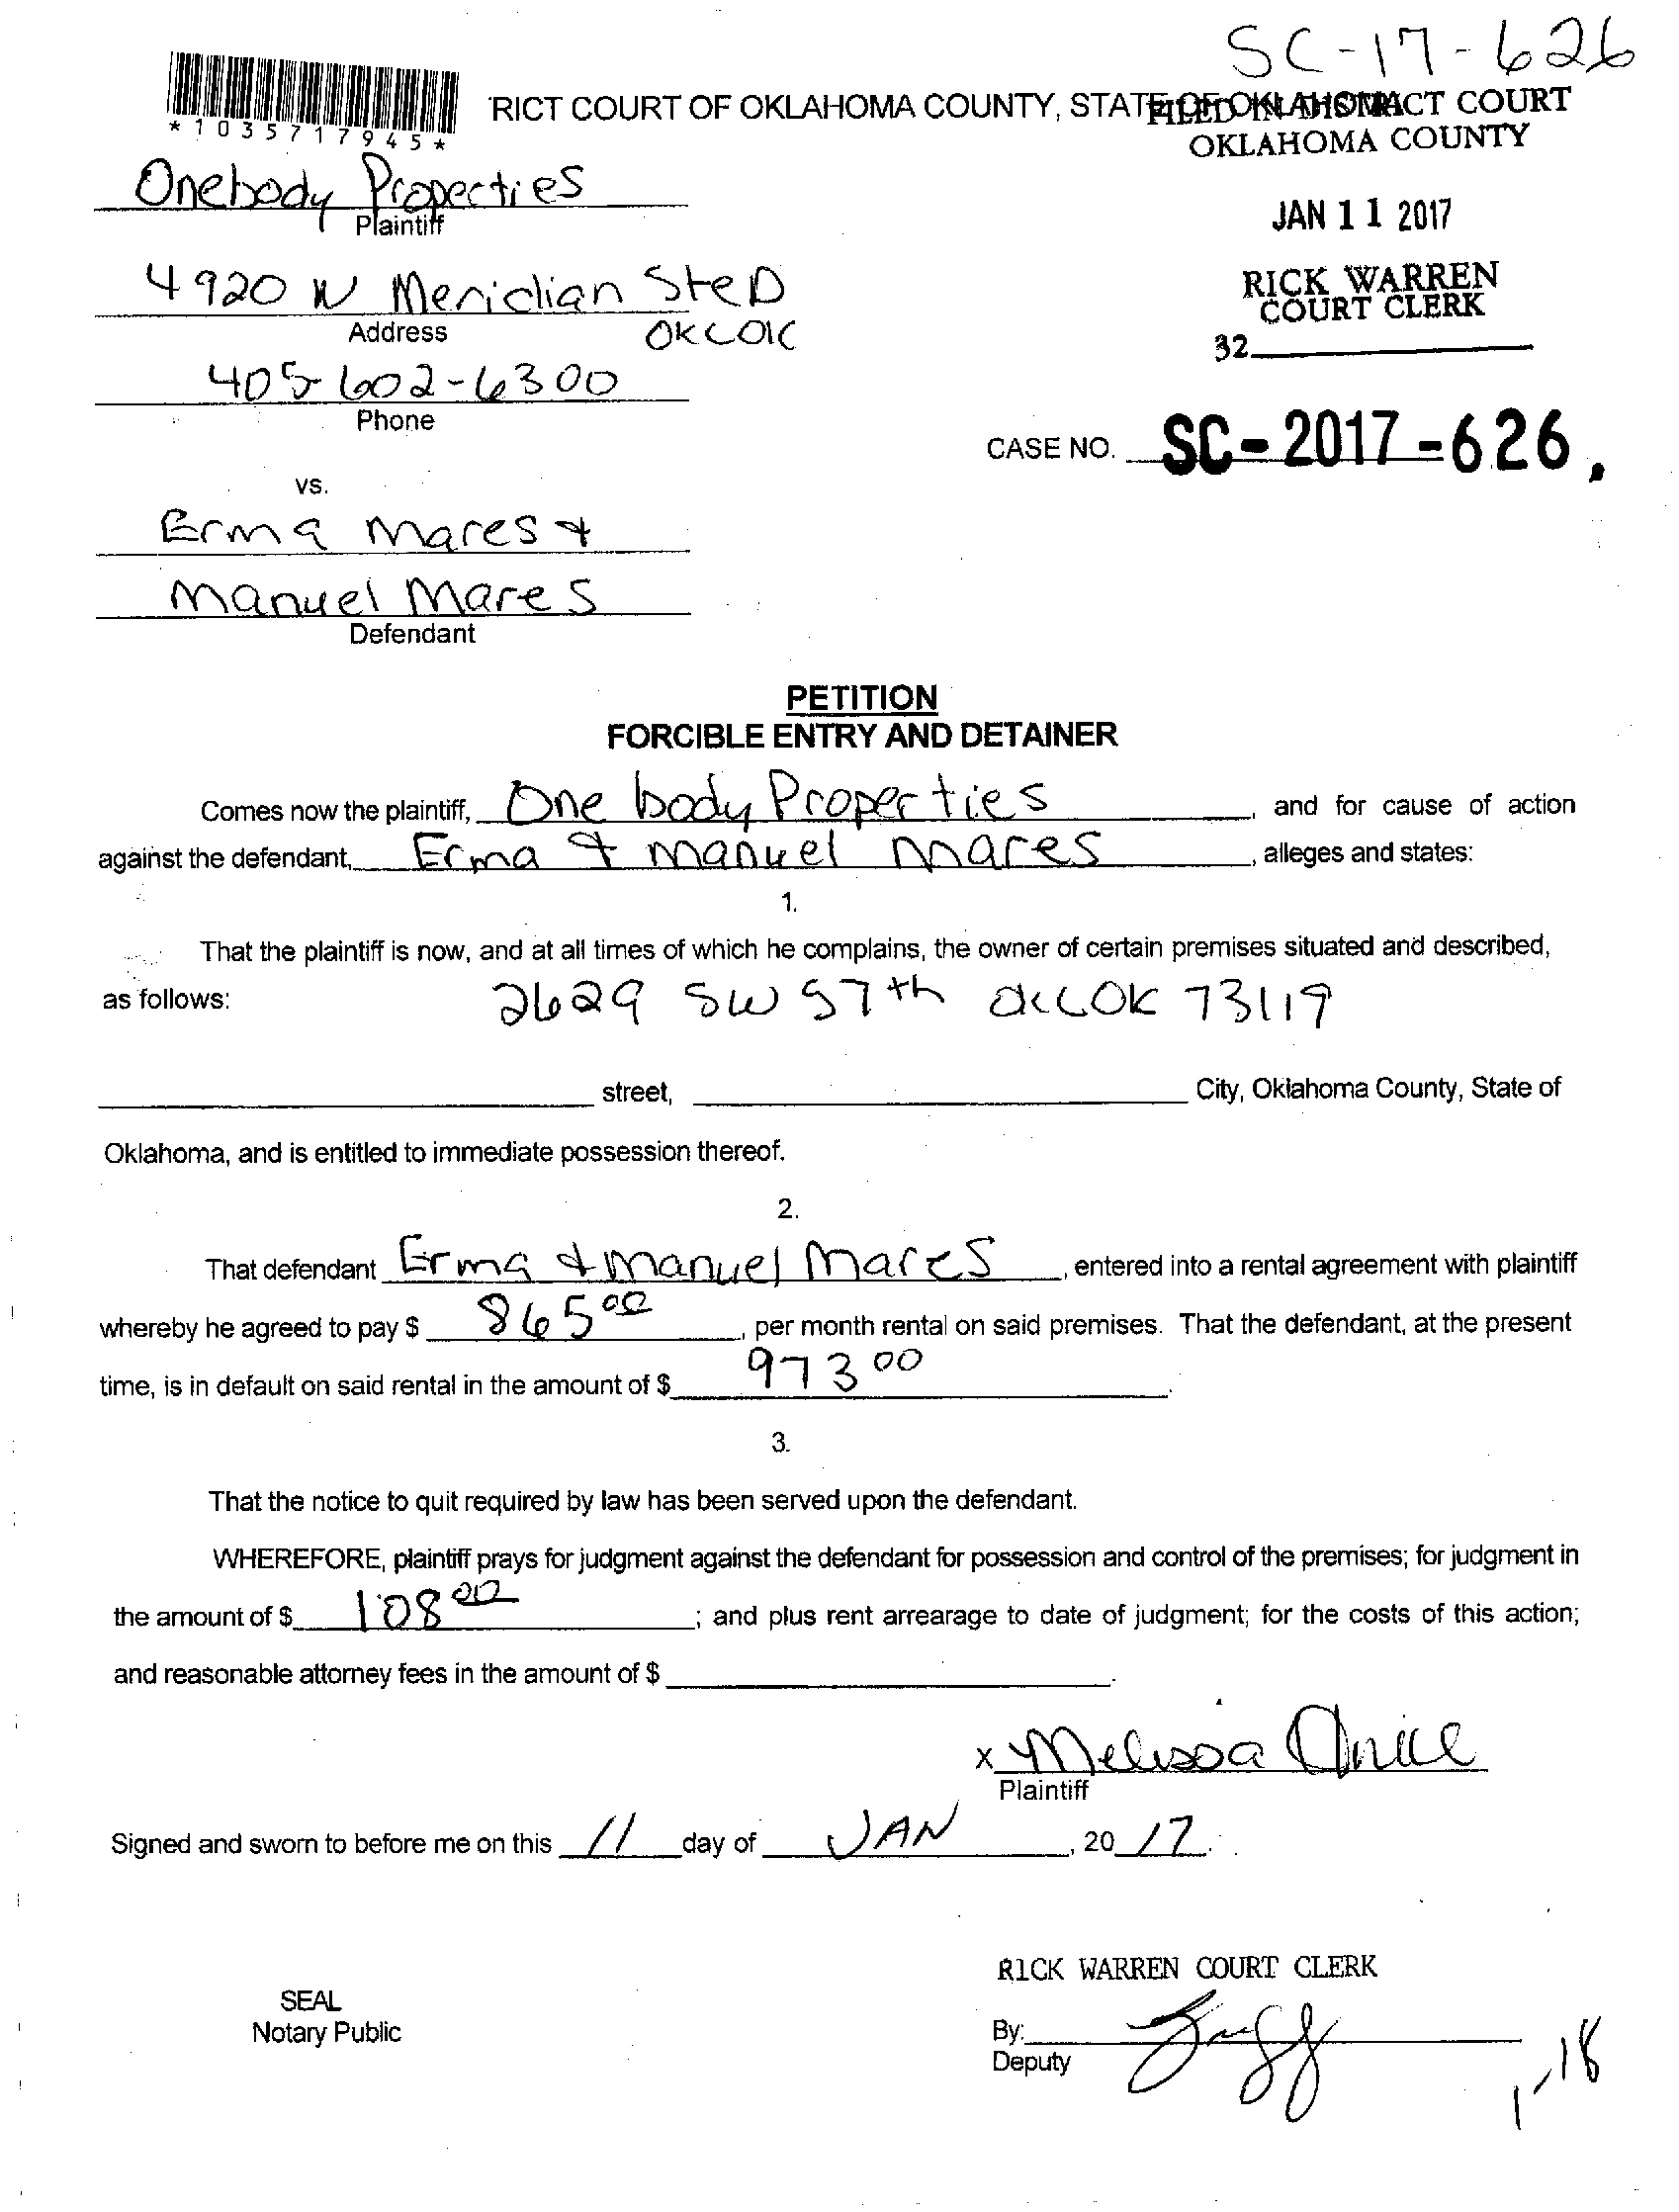 SC-17-626
*1035717945*
RICT COURT OF OKLAHOMA COUNTY, STATE OF OKLAHOMA
FILED IN DISTRICT COURT
OKLAHOMA COUNTY
Onebody Properties
Plaintiff
JAN 11 2017
4920 N Meridian Ste D
Address
OKCOK
RICK WARREN
COURT CLERK
32
405-602-6300
Phone
CASE NO. SC-2017-626,
vs.
Erma Mares &
Manuel Mares
Defendant
PETITION
FORCIBLE ENTRY AND DETAINER
Comes now the plaintiff, One body Properties, and for cause of action
against the defendant, Erma & Manuel Mares, alleges and states:
1.
That the plaintiff is now, and at all times of which he complains, the owner of certain premises situated and described,
as follows: 2629 SW 57th OKCOK 73119
street, City, Oklahoma County, State of
Oklahoma, and is entitled to immediate possession thereof.
2.
That defendant Erma & Manuel Mares, entered into a rental agreement with plaintiff
whereby he agreed to pay $ 865 00, per month rental on said premises. That the defendant, at the present
time, is in default on said rental in the amount of $ 973 00.
3.
That the notice to quit required by law has been served upon the defendant.
WHEREFORE, plaintiff prays for judgment against the defendant for possession and control of the premises; for judgment in
the amount of $ 108 00; and plus rent arrearage to date of judgment; for the costs of this action;
and reasonable attorney fees in the amount of $.
x Melissa
Plaintiff
Signed and sworn to before me on this 11 day of JAN, 20 17.
RICK WARREN COURT CLERK
SEAL
Notary Public
By:
Deputy
1-18